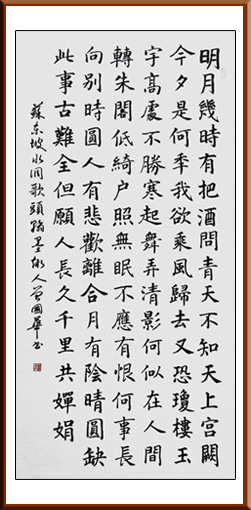 明月幾時有把酒問青天不知天上宮闕
今夕是何秊我欲乘風歸去又恐瓊樓玉
宇髙處不勝寒起舞弄清影何似在人間
轉朱閣低綺户照無眠不應有恨何事長
向别時圓人有悲歡離合月有陰晴圓缺
此事古難全但願人長久千里共嬋娟
蘇东坡水调歌頭翰墨人曾國華书